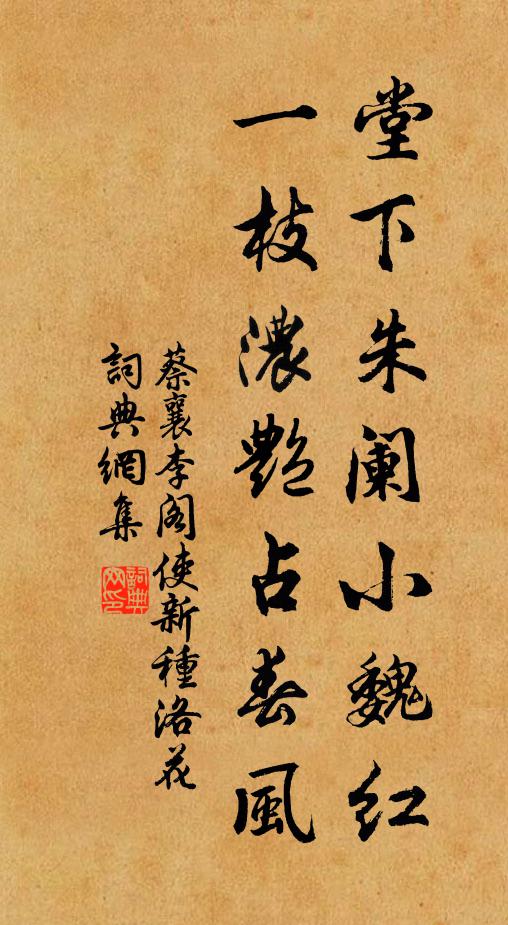 堂下朱阑小魏红
一枝濃艷占春風
蔡襄李阁使新種洛花
詞典網集
詞典
网印